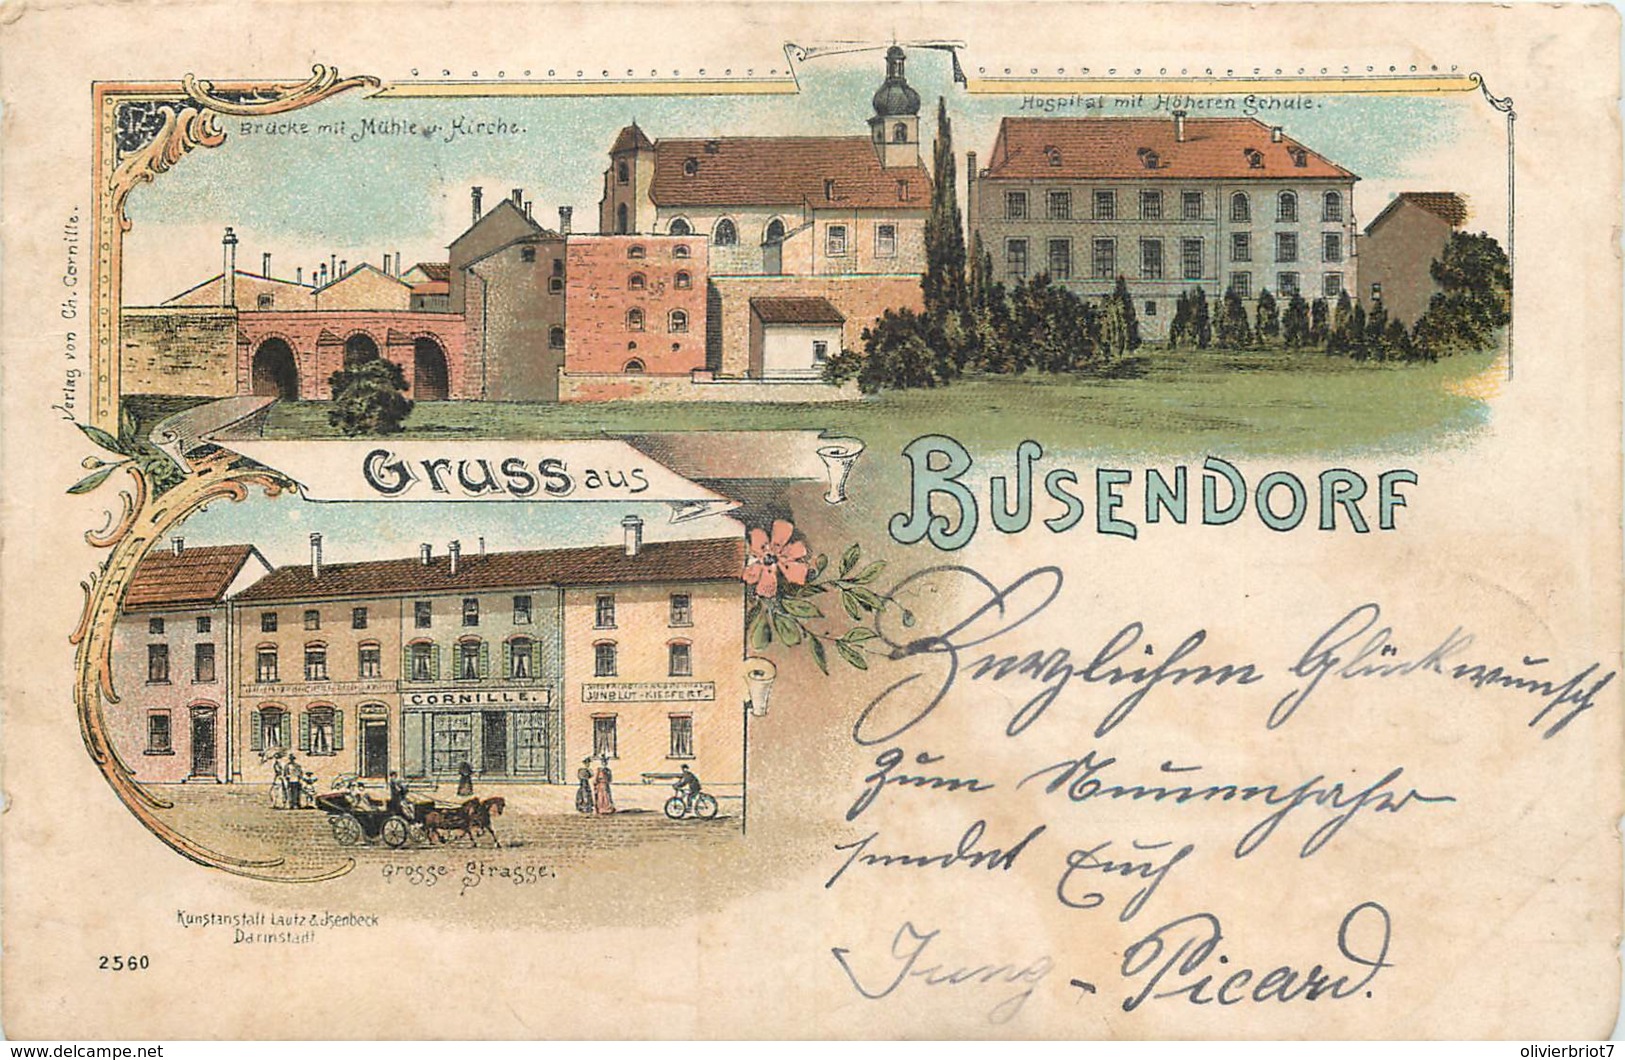 Hospital mit Höheren Schule.
Brücke mit Mühle u. Kirche.
Verlag von Ch. Cornille.
Gruss aus
BUSENDORF
CORNILLE.
JUNBLUT-KIESFERT.
Herzlichen Glückwunsch
zum Neuenjahr
sendet Euch
Jung - Picard.
Grosse Strasse.
Kunstanstalt Lautz & Isenbeck
Darmstadt
2560
delcampe.net
olivierbriot7